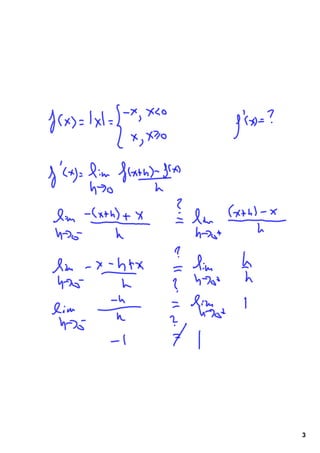 f(x) = |x| = { -x, x<0    f'(x) = ?
x, x≥0
f'(x) = lim h→0 (f(x+h) - f(x))/h
lim h→0⁻ (-(x+h) + x)/h ≟ lim h→0⁺ ((x+h) - x)/h
lim h→0⁻ (-x - h + x)/h ≟ lim h→0⁺ h/h
lim h→0⁻ -h/h ≟ lim h→0⁺ 1
-1 ≠ 1
3